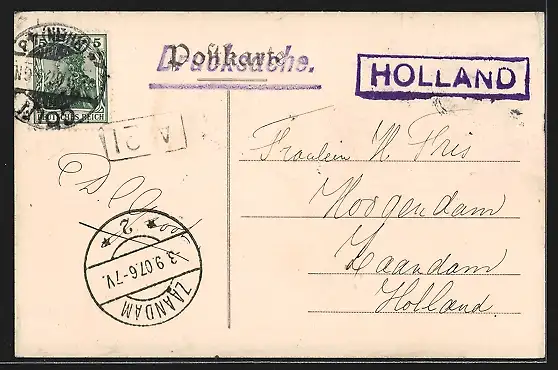 5
DEUTSCHES REICH
Postkarte
Drucksache.
HOLLAND
A 21
Fräulein H Fris
Hoogendam
Zaandam
Holland
2
3.9.07.6-7V.
ZAANDAM